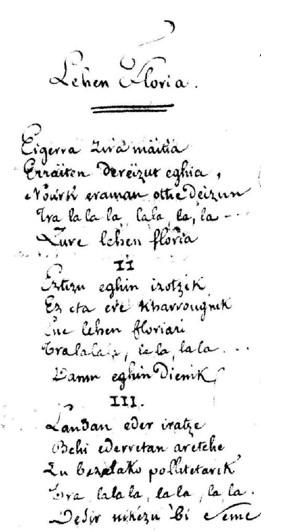 Lehen Floria.
Eigerra zira maitia
Erraiten dereizut eghia,
Nourk eraman othe deizun
Tra la la la, la la, la, la...
Zure lehen floria
II
Eztizu eghin izotzik
Ez eta ere kharrougnik
Ene lehen floriari
Tra la la la, la la, la la...
Damu eghin Dienik
III.
Landan eder iratze
Behi ederretan aretche
Zu bezalako pollitetarik
Tra la la la, la la, la la.
Desir nikezu bi seme